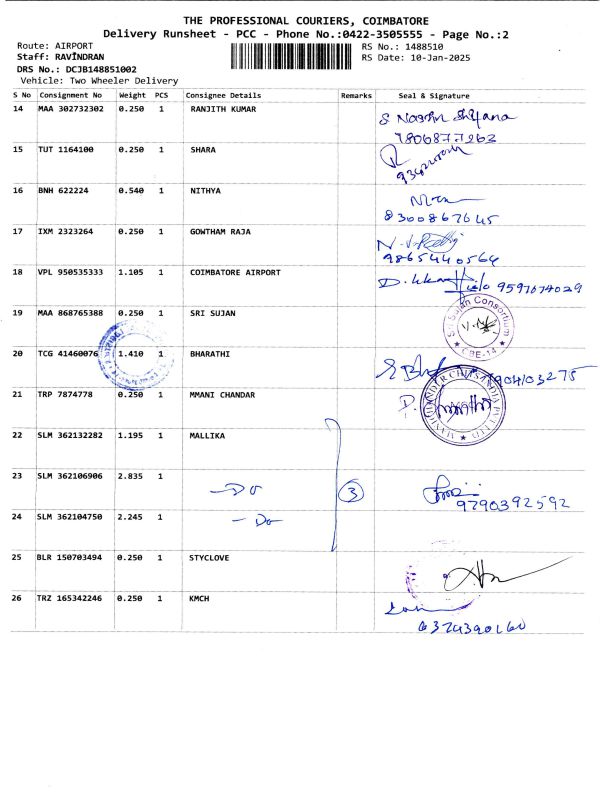 THE PROFESSIONAL COURIERS, COIMBATORE
Delivery Runsheet - PCC - Phone No.:0422-3505555 - Page No.:2
Route: AIRPORT RS No.: 1488510
Staff: RAVINDRAN RS Date: 10-Jan-2025
DRS No.: DCJB148851002
Vehicle: Two Wheeler Delivery
S No Consignment No Weight PCS Consignee Details Remarks Seal & Signature
14 MAA 302732302 0.250 1 RANJITH KUMAR
15 TUT 1164100 0.250 1 SHARA
16 BNH 622224 0.540 1 NITHYA
8300867645
17 IXM 2323264 0.250 1 GOWTHAM RAJA
9865440564
18 VPL 950535333 1.105 1 COIMBATORE AIRPORT
9597074029
19 MAA 868765388 0.250 1 SRI SUJAN
Sri Sujan Consortium
CBE-14
20 TCG 41460076 1.410 1 BHARATHI
21 TRP 7874778 0.250 1 MMANI CHANDAR
22 SLM 362132282 1.195 1 MALLIKA
23 SLM 362106906 2.835 1 Do 3
9790392592
24 SLM 362104750 2.245 1 Do
25 BLR 150703494 0.250 1 STYCLOVE
26 TRZ 165342246 0.250 1 KMCH